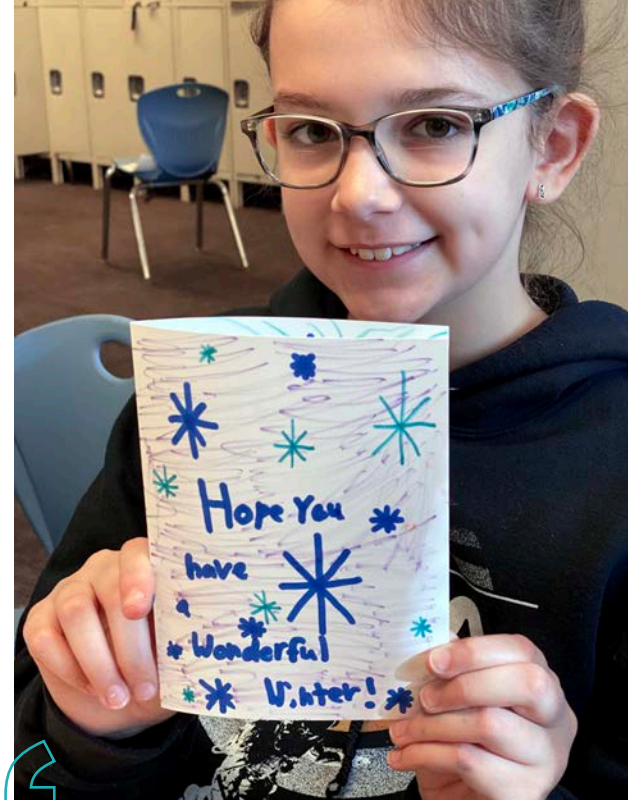 Hope You
have
a
Wonderful
Winter!